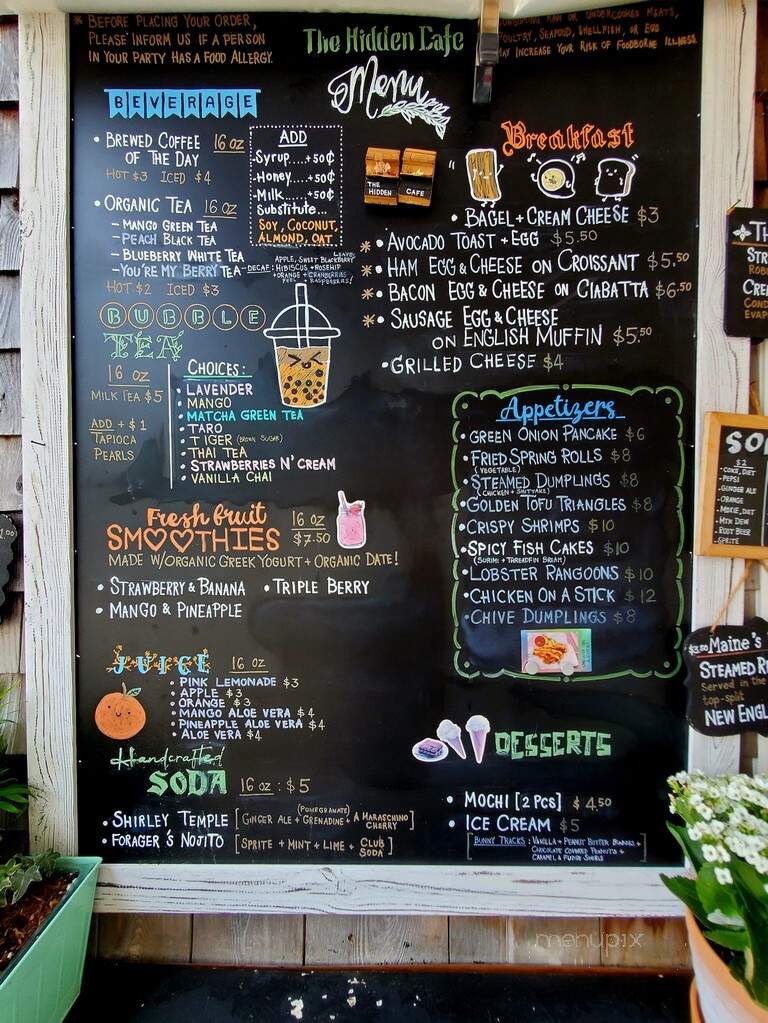 * BEFORE PLACING YOUR ORDER,
PLEASE INFORM US IF A PERSON
IN YOUR PARTY HAS A FOOD ALLERGY.
The Hidden Cafe
Menu
CONSUMING RAW OR UNDERCOOKED MEATS,
POULTRY, SEAFOOD, SHELLFISH, OR EGG
MAY INCREASE YOUR RISK OF FOODBORNE ILLNESS.
BEVERAGE
• BREWED COFFEE 16 OZ
OF THE DAY
HOT $3 ICED $4
ADD
-Syrup....+50¢
-Honey....+50¢
-Milk.....+50¢
Substitute...
SOY, COCONUT,
ALMOND, OAT
• ORGANIC TEA 16 OZ
- MANGO GREEN TEA
- PEACH BLACK TEA
- BLUEBERRY WHITE TEA
- YOU'RE MY BERRY TEA
-DECAF: APPLE, SWEET BLACKBERRY LEAVES,
HIBISCUS + ROSEHIP
+ ORANGE + CRANBERRIES
PEEL + RASPBERRIES!
HOT $2 ICED $3
BUBBLE
TEA
16 OZ
MILK TEA $5
ADD + $1
TAPIOCA
PEARLS
CHOICES:
• LAVENDER
• MANGO
• MATCHA GREEN TEA
• TARO
• TIGER (BROWN SUGAR)
• THAI TEA
• STRAWBERRIES N' CREAM
• VANILLA CHAI
Fresh fruit
SMOOTHIES
16 OZ
$7.50
MADE W/ORGANIC GREEK YOGURT + ORGANIC DATE!
• STRAWBERRY & BANANA • TRIPLE BERRY
• MANGO & PINEAPPLE
JUICE 16 OZ
• PINK LEMONADE $3
• APPLE $3
• ORANGE $3
• MANGO ALOE VERA $4
• PINEAPPLE ALOE VERA $4
• ALOE VERA $4
Handcrafted
SODA 16 OZ : $5
• SHIRLEY TEMPLE [GINGER ALE + GRENADINE (POMEGRANATE) + A MARASCHINO
CHERRY]
• FORAGER'S NOJITO [SPRITE + MINT + LIME + CLUB
SODA]
THE HIDDEN CAFE
Breakfast
• BAGEL + CREAM CHEESE $3
* • AVOCADO TOAST + EGG $5.50
* • HAM EGG & CHEESE ON CROISSANT $5.50
* • BACON EGG & CHEESE ON CIABATTA $6.50
* • SAUSAGE EGG & CHEESE
ON ENGLISH MUFFIN $5.50
• GRILLED CHEESE $4
Appetizers
• GREEN ONION PANCAKE $6
• FRIED SPRING ROLLS $8
(VEGETABLE)
• STEAMED DUMPLINGS $8
(CHICKEN + SHIITAKE)
• GOLDEN TOFU TRIANGLES $8
• CRISPY SHRIMPS $10
• SPICY FISH CAKES $10
(SURIMI + THREADFIN BREAM)
• LOBSTER RANGOONS $10
• CHICKEN ON A STICK $12
• CHIVE DUMPLINGS $8
DESSERTS
• MOCHI [2 PCS] $4.50
• ICE CREAM $5
[BUNNY TRACKS: VANILLA + PEANUT BUTTER BUNNIES +
CHOCOLATE COVERED PEANUTS +
CARAMEL & FUDGE SWIRLS]
TH
STR
CRE
COND
EVAP
SO
$2
• COKE, DIET
• PEPSI
• GINGER ALE
• ORANGE
• MOXIE, DIET
• MTN DEW
• ROOT BEER
• SPRITE
$3.50 Maine's
STEAMED R
Served in the
top-split
NEW ENGL
menupix